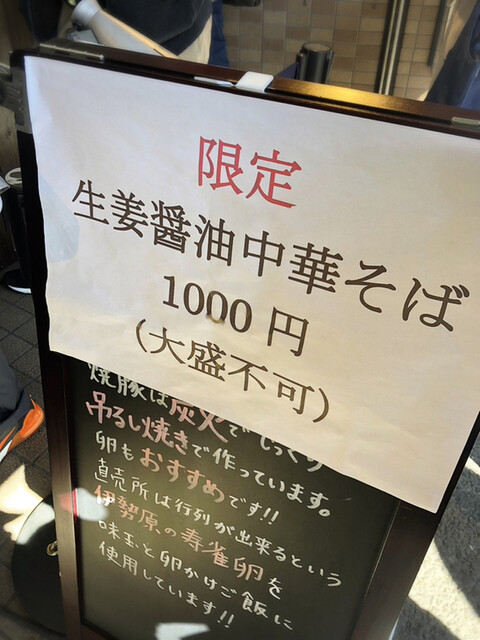 限定
生姜醤油中華そば
1000円
(大盛不可)
焼豚は炭火でじっくり
吊るし焼きで作っています。
卵もおすすめです!!
直売所は行列が出来るという
伊勢原の寿雀卵を
味玉と卵かけご飯に
使用しています!!